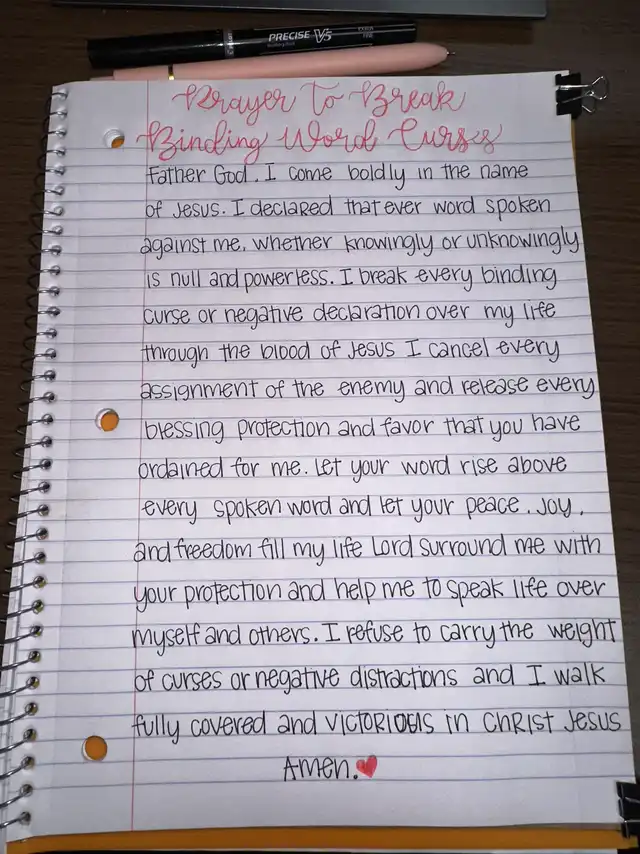 PRECISE V5
Prayer To Break
Binding Word Curses
Father God, I come boldly in the name
of Jesus. I declared that ever word spoken
against me, whether knowingly or unknowingly
is null and powerless. I break every binding
curse or negative declaration over my life
through the blood of Jesus I cancel every
assignment of the enemy and release every
blessing protection and favor that you have
ordained for me. Let your word rise above
every spoken word and let your peace, joy,
and freedom fill my life Lord surround me with
your protection and help me to speak life over
myself and others. I refuse to carry the weight
of curses or negative distractions and I walk
fully covered and victorious in Christ Jesus
Amen.